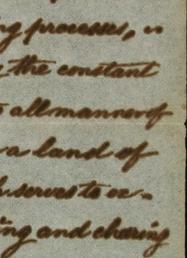 processes,
the constant
all manner of
a land of
serves to ex-
and chasing